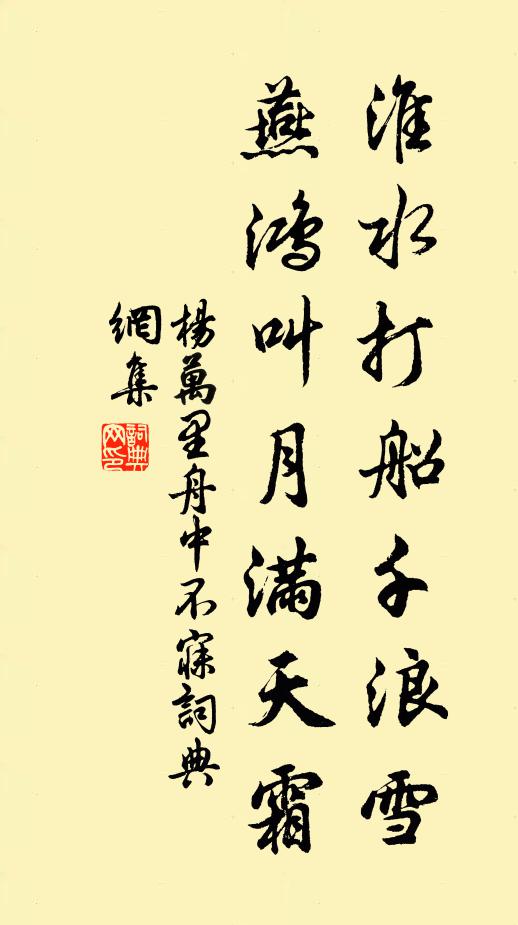 淮水打船千浪雪
燕鸿叫月满天霜
楊萬里舟中不寐詞典
網集
詞典
网印